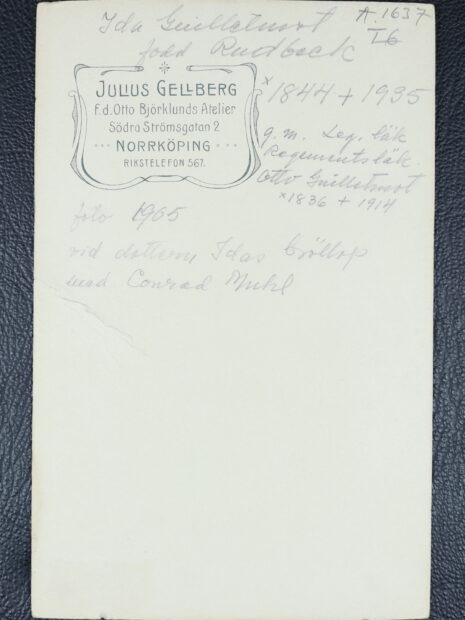 Ida Guilletmot
född Rudbeck
A. 1637
I6
JULIUS GELLBERG
F.d. Otto Björklunds Atelier
Södra Strömsgatan 2
NORRKÖPING
RIKSTELEFON 567.
x 1844 + 1935
g.m. Leg. läk
Regementsläk.
Otto Guilletmot
x 1836 + 1914
foto 1905
vid dottern Idas bröllop
med Conrad